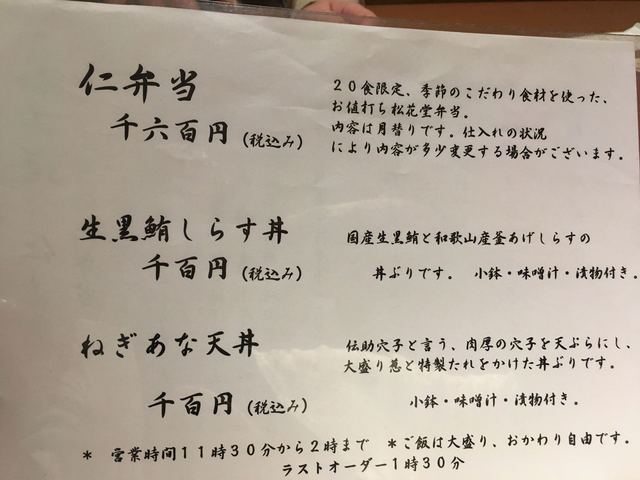 仁弁当
千六百円（税込み）
２０食限定、季節のこだわり食材を使った、
お値打ち松花堂弁当。
内容は月替りです。仕入れの状況
により内容が多少変更する場合がございます。
生黒鮪しらす丼
千百円（税込み）
国産生黒鮪と和歌山産釜あげしらすの
丼ぶりです。 小鉢・味噌汁・漬物付き。
ねぎあな天丼
千百円（税込み）
伝助穴子と言う、肉厚の穴子を天ぷらにし、
大盛り葱と特製たれをかけた丼ぶりです。
小鉢・味噌汁・漬物付き。
＊ 営業時間１１時３０分から２時まで ＊ご飯は大盛り、おかわり自由です。
ラストオーダー１時３０分